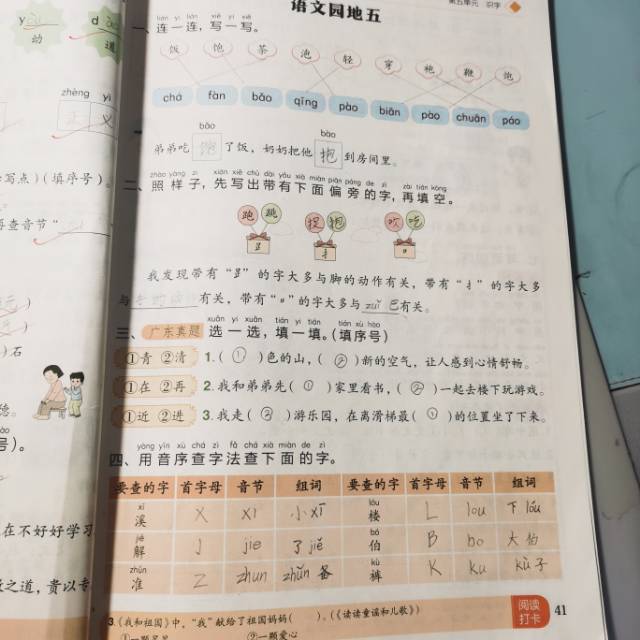 第五单元 识字
语文园地五
lián yi lián xiě yi xiě
连一连，写一写。
饭 饱 茶 泡 轻 穿 袍 鞭 炮
chá fàn bǎo qīng pào biān pào chuān páo
bǎo bào
弟弟吃 饱 了饭，奶奶把他 抱 到房间里。
zhào yàng zi xiān xiě chū dài yǒu xià miàn piān páng de zì zài tián kòng
二、照样子，先写出带有下面偏旁的字，再填空。
跑 跳 捉 抱 吹 吃
我发现带有“⻊”的字大多与脚的动作有关，带有“扌”的字大多
与手的动作有关，带有“口”的字大多与 zuǐ 巴有关。
xuǎn yi xuǎn tián yi tián tián xù hào
三、广东真题 选一选，填一填。（填序号）
①青 ②清 1.（ ① ）色的山，（ ② ）新的空气，让人感到心情舒畅。
①在 ②再 2.我和弟弟先（ ① ）家里看书，（ ② ）一起去楼下玩游戏。
①近 ②进 3.我走（ ② ）游乐园，在离滑梯最（ ① ）的位置坐了下来。
yòng yīn xù chá zì fǎ chá xià miàn de zì
四、用音序查字法查下面的字。
要查的字 首字母 音节 组词 要查的字 首字母 音节 组词
xī lóu
溪 X xī 小xī 楼 L lou 下lóu
jiě bó
解 J jie 了jiě 伯 B bo 大伯
zhǔn kù
准 Z zhun zhǔn备 裤 K ku kù子
3.《我和祖国》中，“我”献给了祖国妈妈（ ）。（《读读童谣和儿歌》）
①一颗星星 ②一颗爱心
阅读
打卡
41
幼
zhèng yì
正 义
写点）（填序号）。
查音节“
）石
号）。
在不好好学习
之道，贵以专